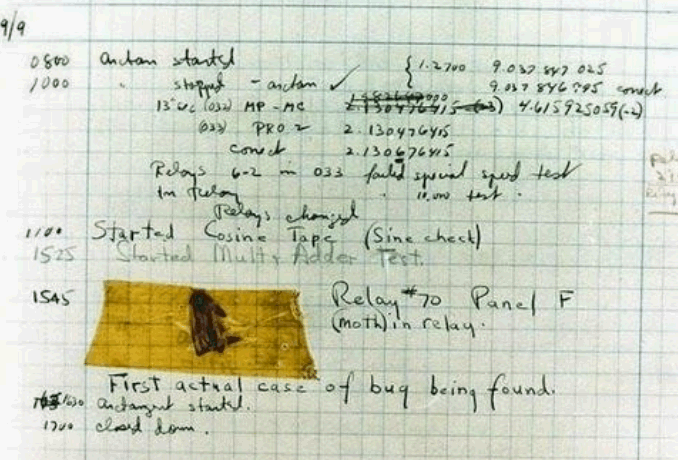 9/9
0800 Antan started { 1.2700 9.037 847 025
1000 " stopped - antan ✓ 9.037 846 995 conect
13"uc (032) MP - MC 2.130476415 (-3) 4.615925059(-2)
(033) PRO 2 2.130476415
conect 2.130676415
Relays 6-2 in 033 failed special speed test
in relay " 10.000 test .
Relays changed
1100 Started Cosine Tape (Sine check)
1525 Started Mult + Adder Test.
1545 Relay #70 Panel F
(moth) in relay.
First actual case of bug being found.
1630 Antangent started.
1700 closed down .